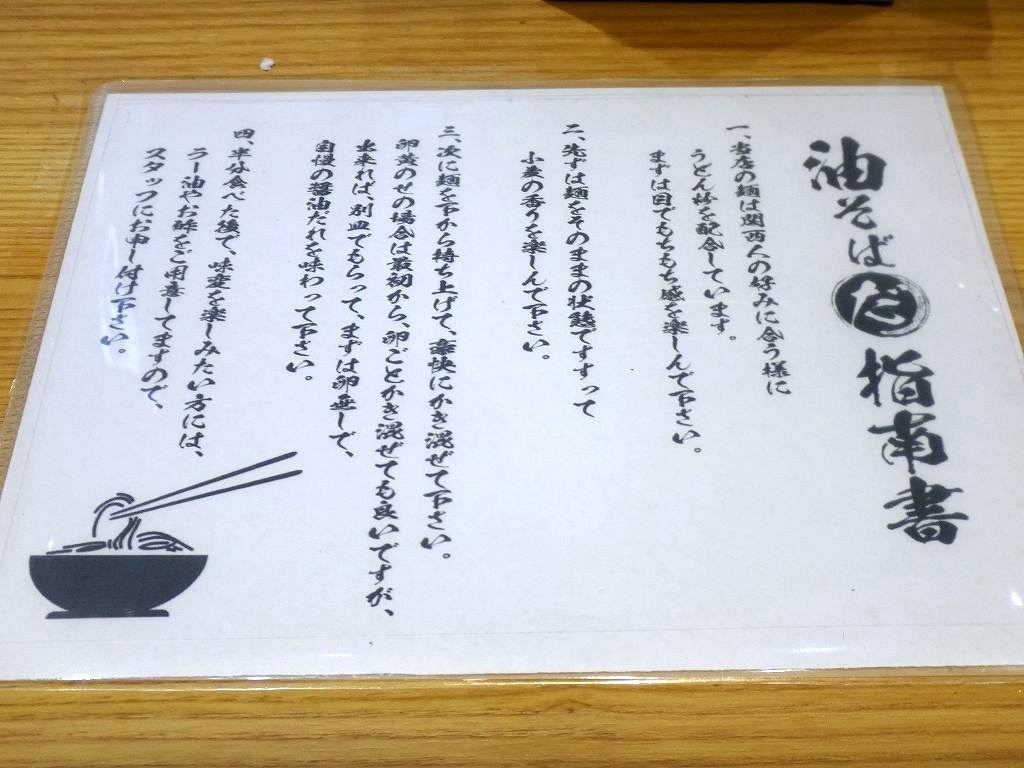 油そば だ 指南書
一、当店の麺は関西人の好みに合う様に
うどん粉を配合しています。
まずは目でもちもち感を楽しんで下さい。
二、先ずは麺をそのままの状態ですすって
小麦の香りを楽しんで下さい。
三、次に麺を下から持ち上げて、豪快にかき混ぜて下さい。
卵黄のせの場合は最初から、卵ごとかき混ぜても良いですが、
出来れば、別皿でもらって、まずは卵無しで、
自慢の醤油だれを味わって下さい。
四、半分食べた後で、味変を楽しみたい方には、
ラー油やお酢をご用意してますので、
スタッフにお申し付け下さい。